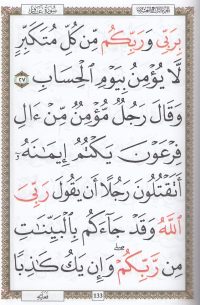 سُورَةُ غَافِرٍ
بِرَبِّي وَرَبِّكُم مِّن كُلِّ مُتَكَبِّرٍ
لَّا يُؤْمِنُ بِيَوْمِ الْحِسَابِ
٢٧
وَقَالَ رَجُلٌ مُّؤْمِنٌ مِّنْ ءَالِ
فِرْعَوْنَ يَكْتُمُ إِيمَانَهُ
أَتَقْتُلُونَ رَجُلًا أَن يَقُولَ رَبِّيَ
اللَّهُ وَقَدْ جَآءَكُم بِالْبَيِّنَاتِ
مِن رَّبِّكُمْ ۖ وَإِن يَكُ كَاذِبًا
133